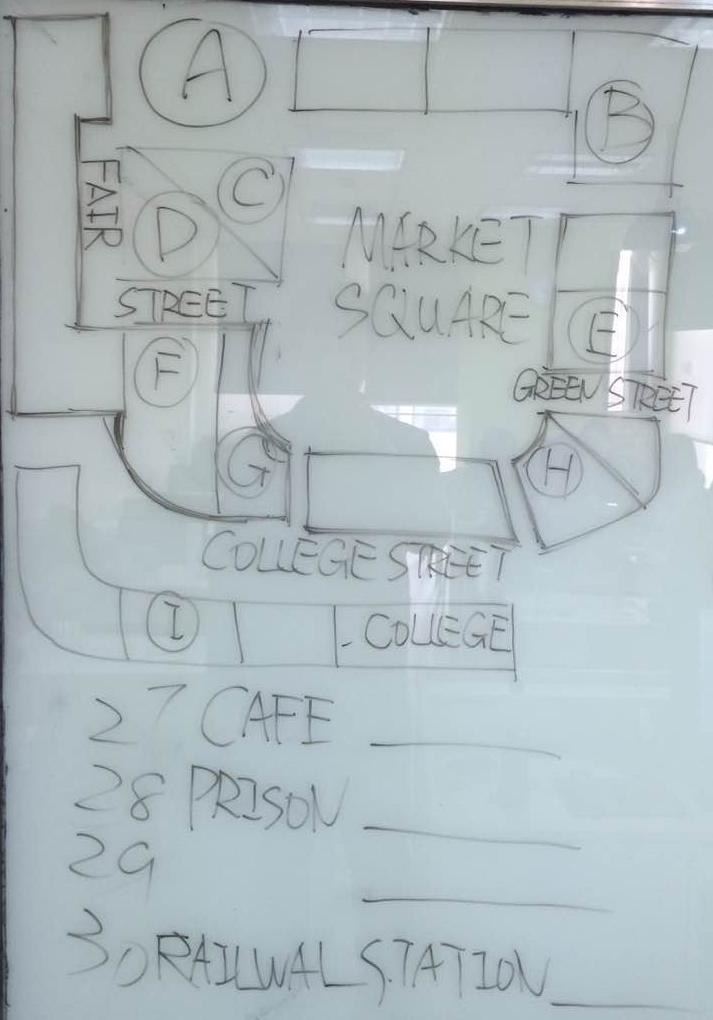 A
B
C
FAIR
D
MARKET
SQUARE
STREET
E
F
GREEN STREET
G
H
COLLEGE STREET
I
COLLEGE
27 CAFE
28 PRISON
29
30 RAILWAL STATION